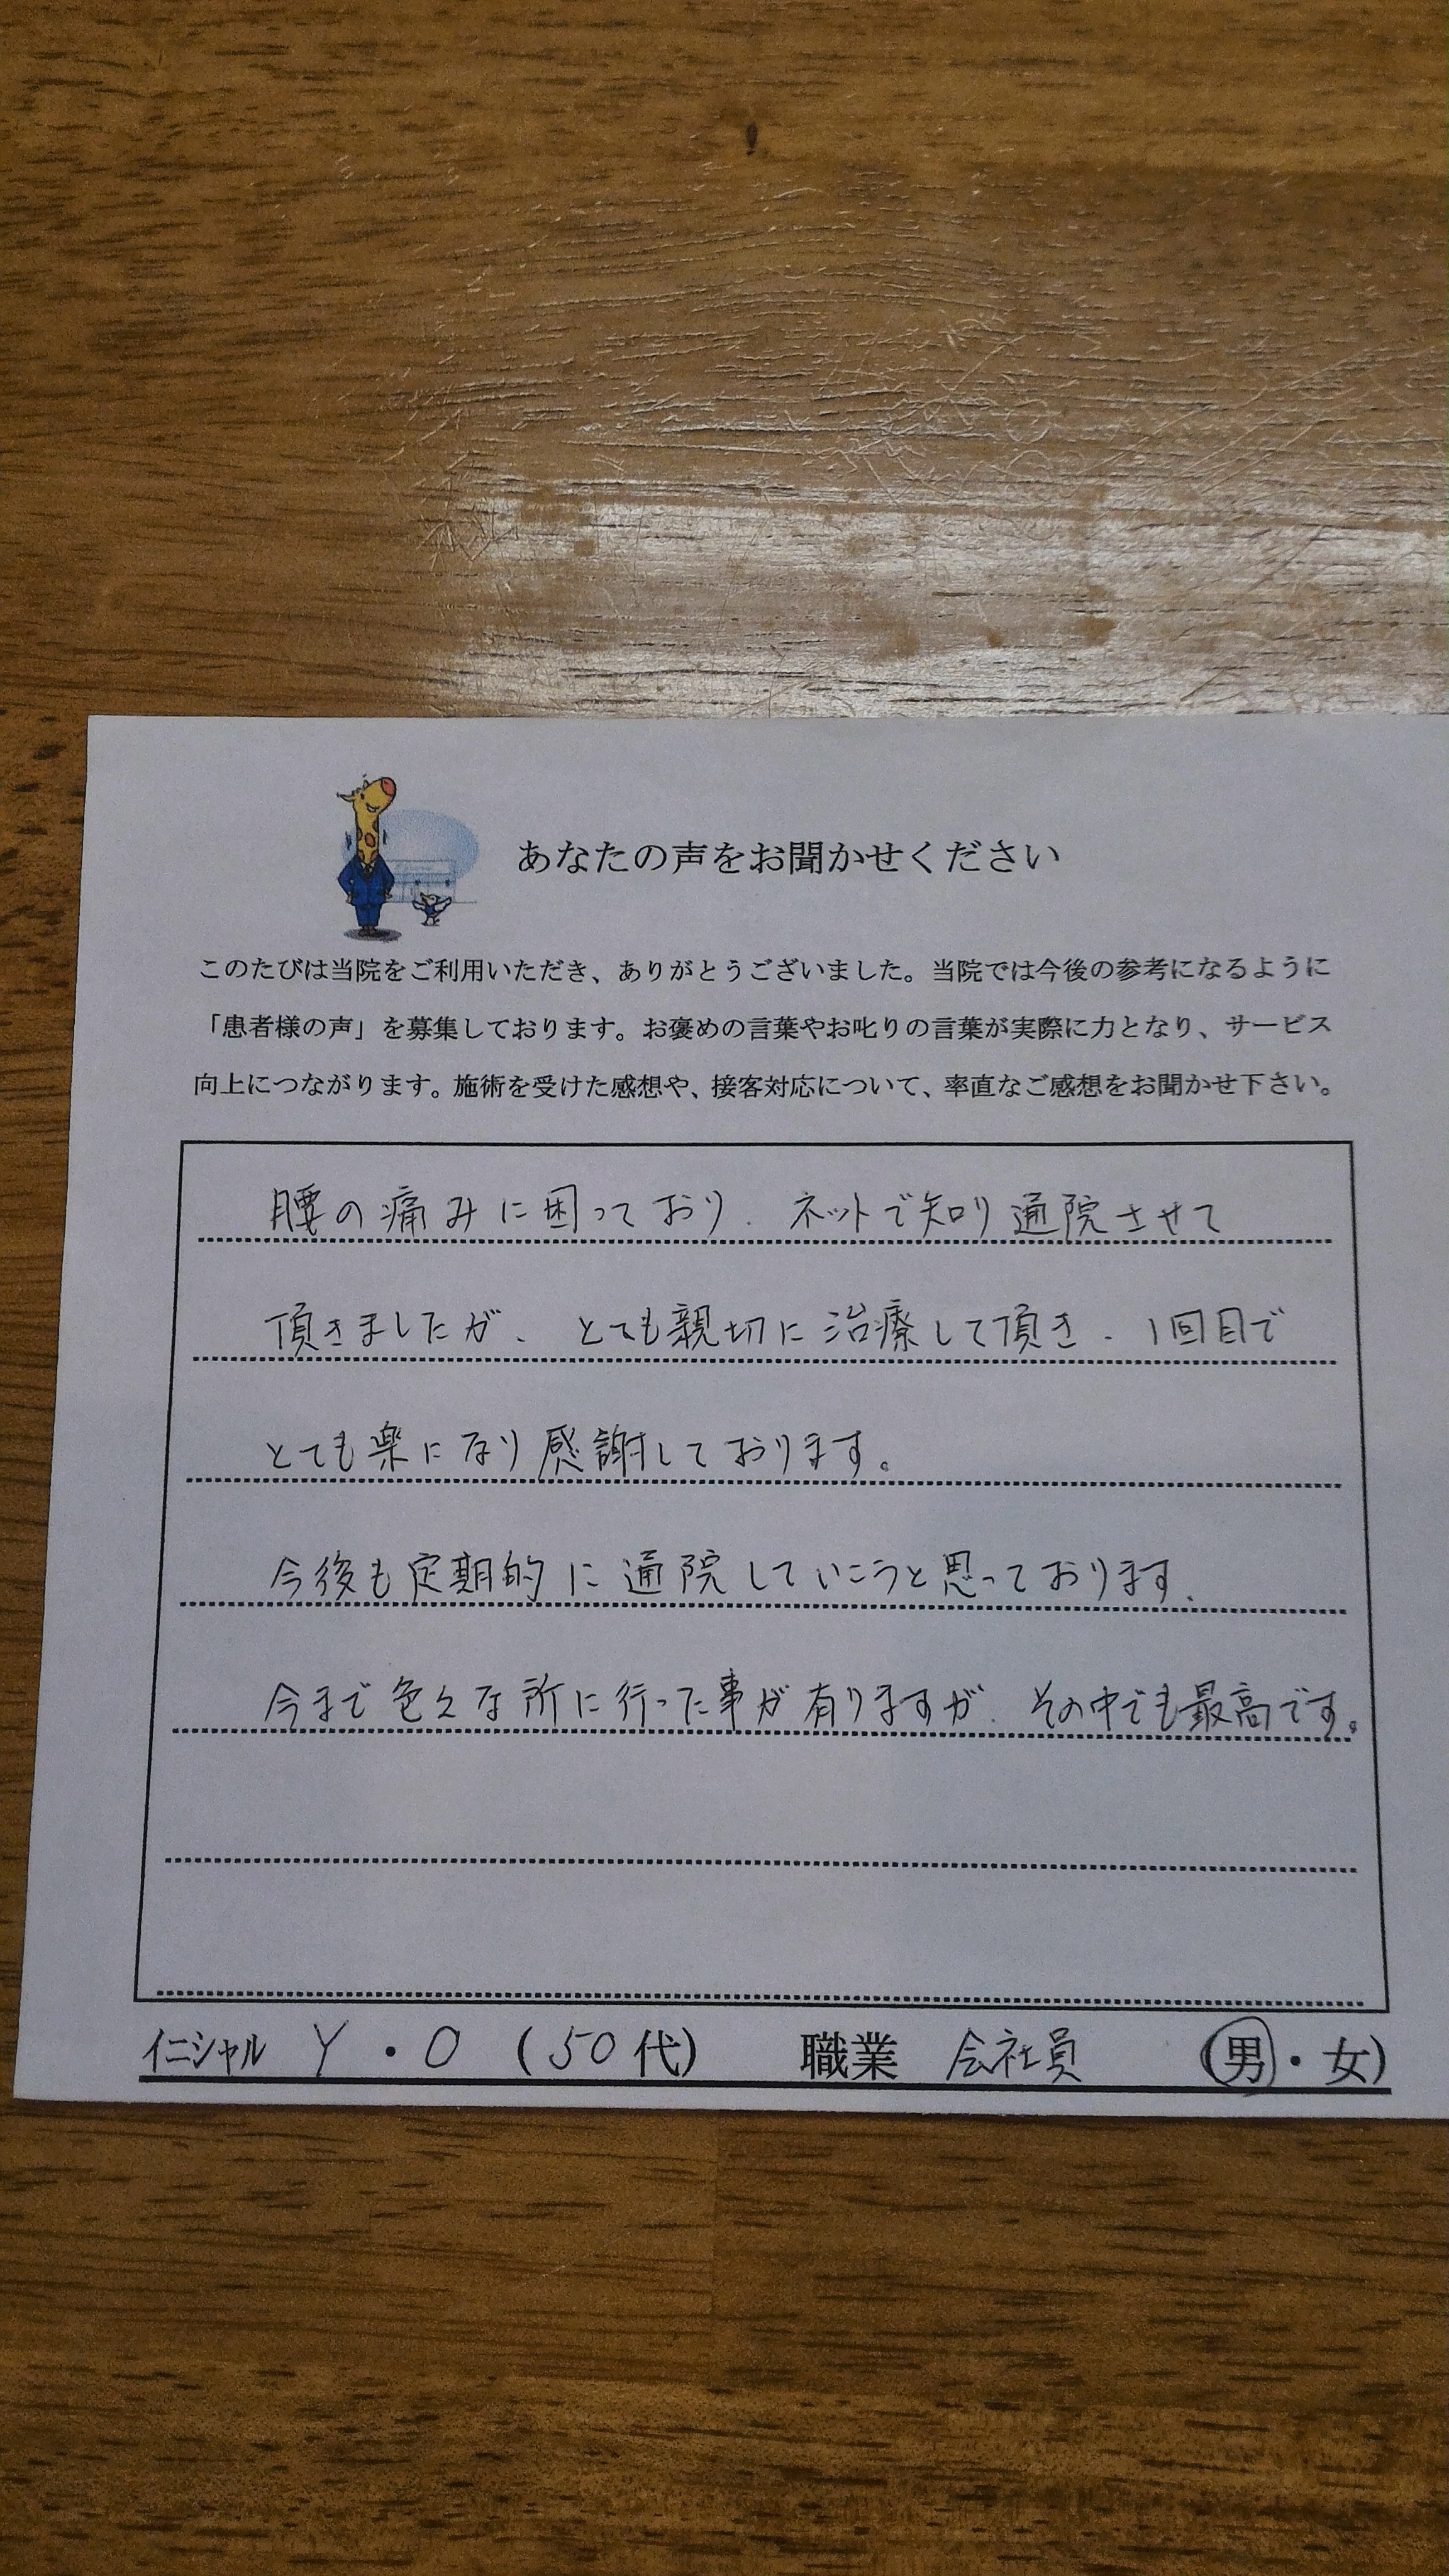 あなたの声をお聞かせください
このたびは当院をご利用いただき、ありがとうございました。当院では今後の参考になるように
「患者様の声」を募集しております。お褒めの言葉やお叱りの言葉が実際に力となり、サービス
向上につながります。施術を受けた感想や、接客対応について、率直なご感想をお聞かせ下さい。
腰の痛みに困っており、ネットで知り通院させて
頂きましたが、とても親切に治療して頂き、1回目で
とても楽になり感謝しております。
今後も定期的に通院していこうと思っております、
今まで色々な所に行った事が有りますが、その中でも最高です。
イニシャル Y・O (50代) 職業 会社員 (男・女)